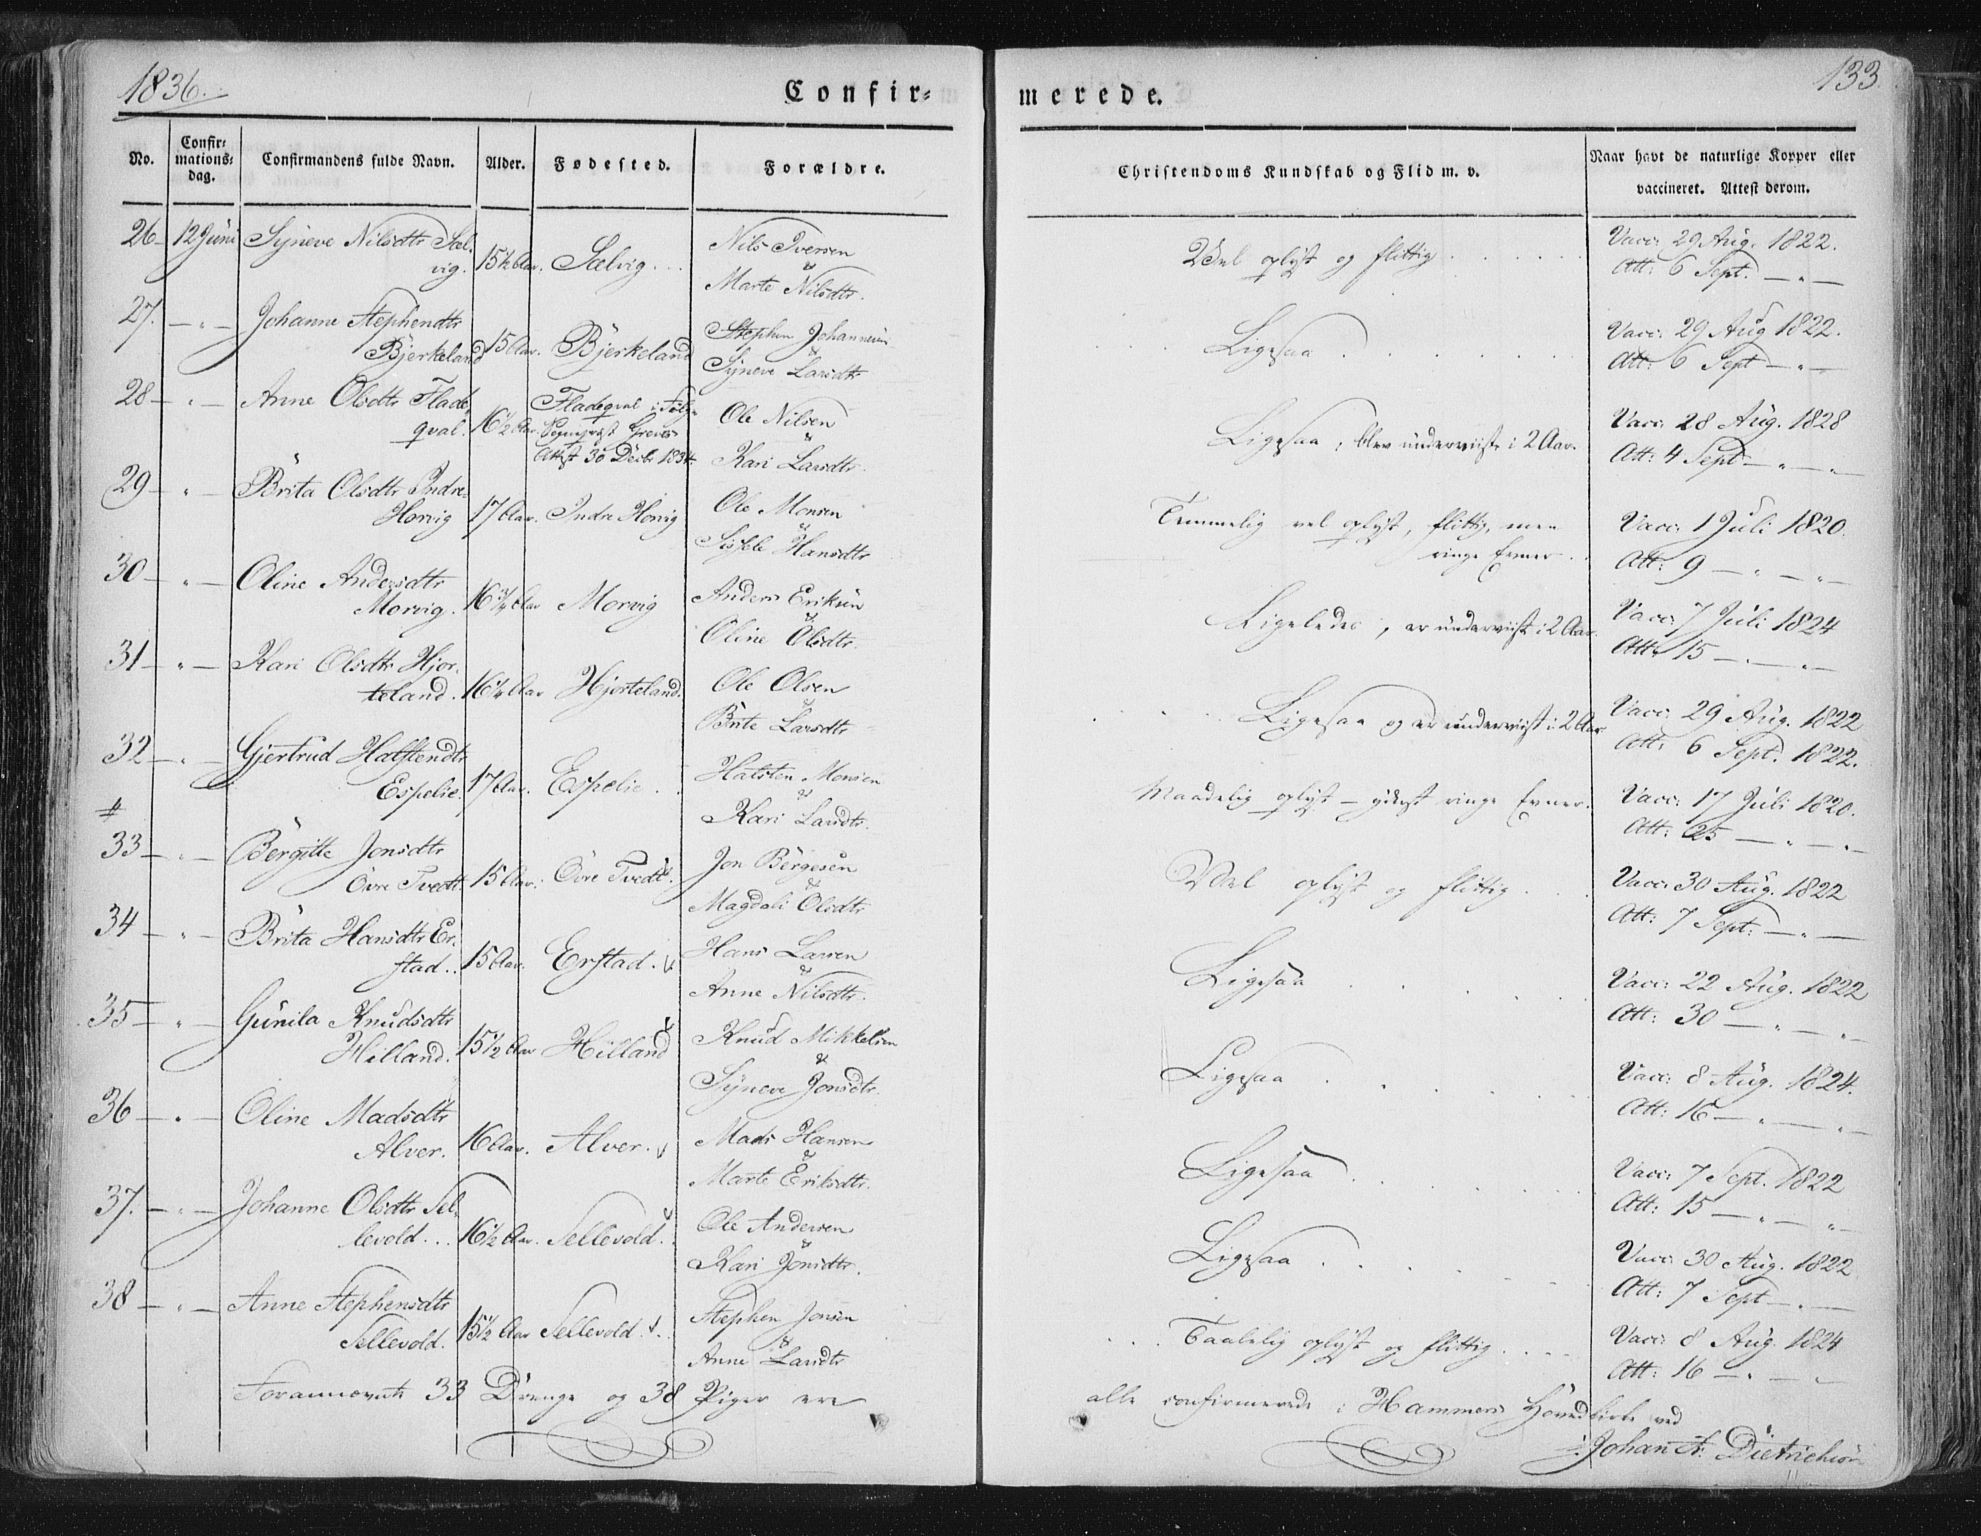 1836.
Confir=
merede.
133
No.
Confir=
mations=
dag.
Confirmandens fulde Navn.
Alder.
Fødested.
Forældre.
Christendoms Kundskab og Flid m. v.
Naar havt de naturlige Kopper eller
vaccineret. Attest derom.
26 — 12 Juni Syneve Nilsdtr Sæl-
vig. 15½ Aar. Sælvig . . .
Nils Iversen
&
Marte Nilsdtr.
Vel oplyst og flittig . . . . . .
Vacc: 29 Aug. 1822.
Att: 6 Sept. — „ —
27. — „ — Johanne Stephendtr
Bjerkeland 15 Aar. Bjerkeland
Stephen Johannesen
Syneve Larsdtr
Ligesaa . . . . . .
Vacc: 29 Aug 1822.
Att: 6 Sept — „ —
28 — „ — Anne Olsdtr Flade-
qval. 16½ Aar.
Fladeqval i Følge
Sognepræst Greves
Attest 30 Decbr 1834.
Ole Nilsen
&
Kari Larsdtr.
Ligesaa, blev underviist i 2 Aar.
Vacc: 28 Aug. 1828
Att: 4 Sept — „ — „ —
29 — „ — Brita Olsdtr Indre-
Horvig 17 Aar. Indre Horvig
Ole Monsen
&
Sissele Hansdtr
Temmelig vel oplyst, flittig, men
ringe Evner . .
Vacc: 1 Juli 1820.
Att: 9 — „ — „ —
30 — „ — Oline Andersdtr
Morvig. 16¾ Aar Morvig
Anders Eriksen
&
Oline Olsdtr.
Ligeledes, er underviist i 2 Aar.
Vacc: 7 Juli 1824
Att: 15 — „ — „ —
31 — „ — Kari Olsdtr Hjor-
teland. 16¼ Aar Hjorteland.
Ole Olsen
&
Brite Larsdtr
Ligesaa og er underviist i 2 Aar
Vacc: 29 Aug. 1822
Att: 6 Sept. 1822.
32 — „ — Gjertrud Halstendtr
Espelie. 17 Aar. Espelie . .
Halsten Monsen
&
Kari Larsdtr.
Maadelig oplyst — yderst ringe Evner.
Vacc: 17 Juli 1820.
Att: 25 — „ — „ —
#
33 — „ — Bergitte Jonsdtr
Övre Tvedt. 15 Aar. Övre Tvedt.
Jon Börgesen
&
Magdali Olsdtr
Vel oplyst og flittig . . .
Vacc: 30 Aug. 1822
Att: 7 Sept: — „ —
34 — „ — Brita Hansdtr Er-
stad.. 15 Aar. Erstad.
Hans Larsen
&
Anne Nilsdtr.
Ligesaa . . . . .
Vacc: 22 Aug. 1822
Att: 30 — „ — „ —
35 — „ — Gunila Knudsdtr
Hilland. 15½ Aar Hilland
Knud Mikkelsen
&
Syneve Jonsdtr.
Ligesaa . . . . .
Vacc: 8 Aug. 1824.
Att: 16 — „ — „ —
36 — „ — Oline Madsdtr
Alver. 16 Aar. Alver.
Mads Hansen
&
Marte Eriksdtr.
Ligesaa . . . . .
Vacc: 7 Sept. 1822
Att: 15 — „ — „ —
37. — „ — Johanne Olsdtr Sel-
levold . . . 16½ Aar. Sellevold.
Ole Andersen
&
Kari Jonsdtr.
Ligesaa . . . . .
Vacc: 30 Aug. 1822
Att: 7 Sept — „ —
38 — „ — Anne Stephensdtr
Sellevold. 15½ Aar Sellevold.
Stephen Jonsen
&
Anne Larsdtr
Taalelig oplyst og flittig . . . .
Vacc: 8 Aug. 1824
Att: 16 — „ — „ —
Forannævnte 33 Drenge og 38 Piger ere
alle confirmerede i Hammers Hovedkirke ved
Johan F. Dietrichson